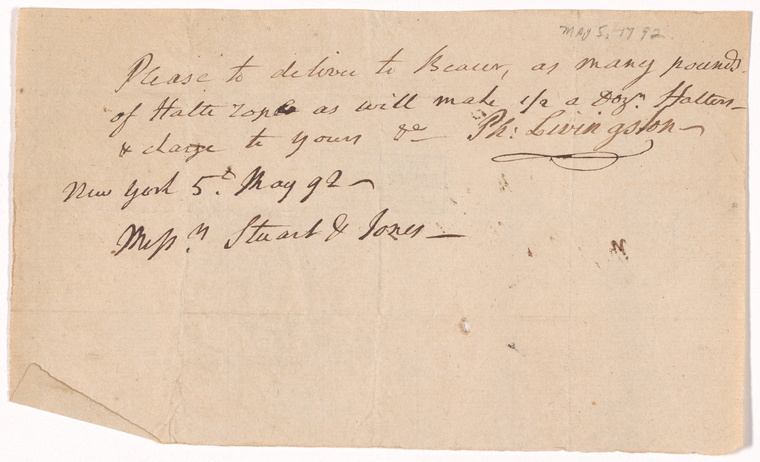 MAY 5, 1792
Please to deliver to Bearer, as many pounds
of Halte rope as will make 1/2 a Dozn. Halters—
& charge to yours &c Ph: Livingston
New York 5.th May 92—
Messrs. Stuart & Jones—